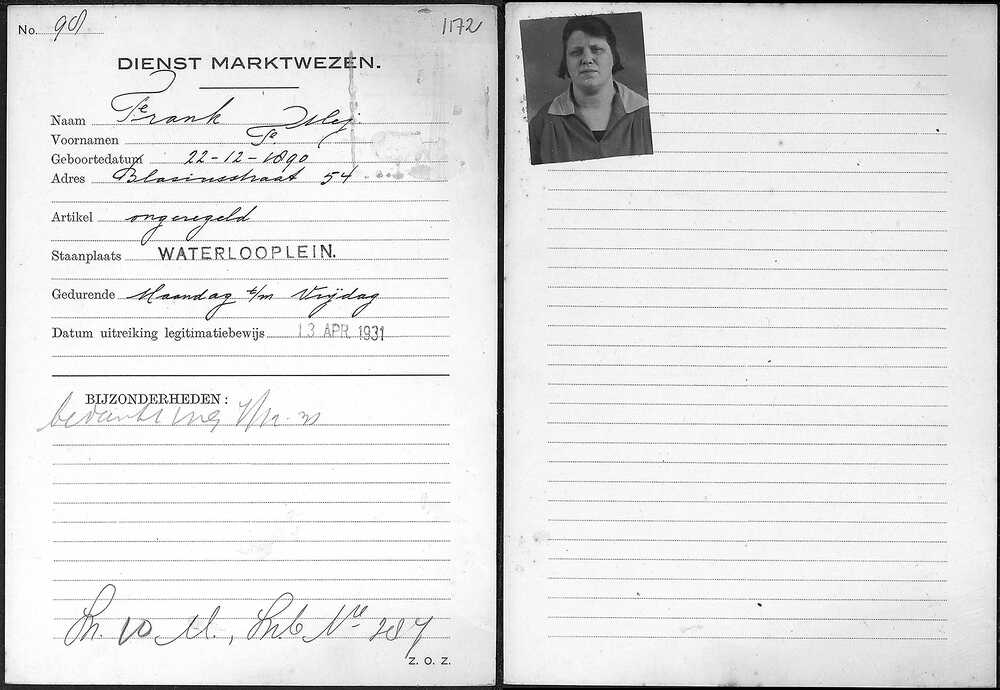 No. 98
1172
DIENST MARKTWEZEN.
Naam Frank
Voornamen
Geboortedatum 22-12-1890
Adres Blasiusstraat 54
Artikel ongeregeld
Staanplaats WATERLOOPLEIN.
Gedurende Maandag t/m Vrijdag
Datum uitreiking legitimatiebewijs 13 APR. 1931
BIJZONDERHEDEN:
10 M., No 287
Z. O. Z.